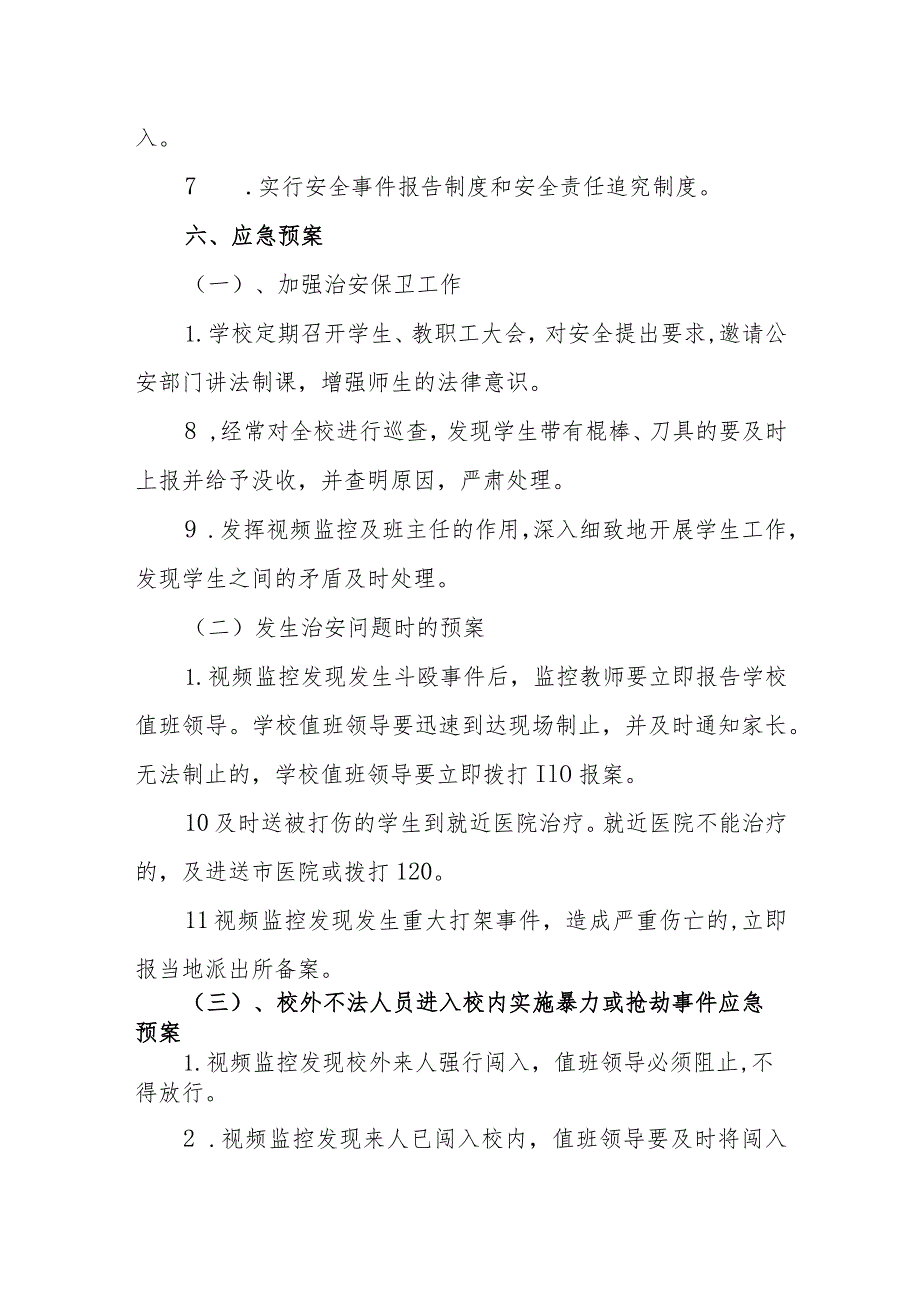 入。
7 .实行安全事件报告制度和安全责任追究制度。
六、应急预案
（一）、加强治安保卫工作
1.学校定期召开学生、教职工大会，对安全提出要求,邀请公
安部门讲法制课，增强师生的法律意识。
8 ,经常对全校进行巡查，发现学生带有棍棒、刀具的要及时
上报并给予没收，并查明原因，严肃处理。
9 .发挥视频监控及班主任的作用,深入细致地开展学生工作，
发现学生之间的矛盾及时处理。
（二）发生治安问题时的预案
1.视频监控发现发生斗殴事件后，监控教师要立即报告学校
值班领导。学校值班领导要迅速到达现场制止，并及时通知家长。
无法制止的，学校值班领导要立即拨打 IlO 报案。
10及时送被打伤的学生到就近医院治疗。就近医院不能治疗
的，及进送市医院或拨打 120。
11视频监控发现发生重大打架事件，造成严重伤亡的,立即
报当地派出所备案。
（三）、校外不法人员进入校内实施暴力或抢劫事件应急
预案
1.视频监控发现校外来人强行闯入，值班领导必须阻止,不
得放行。
2 .视频监控发现来人已闯入校内，值班领导要及时将闯入